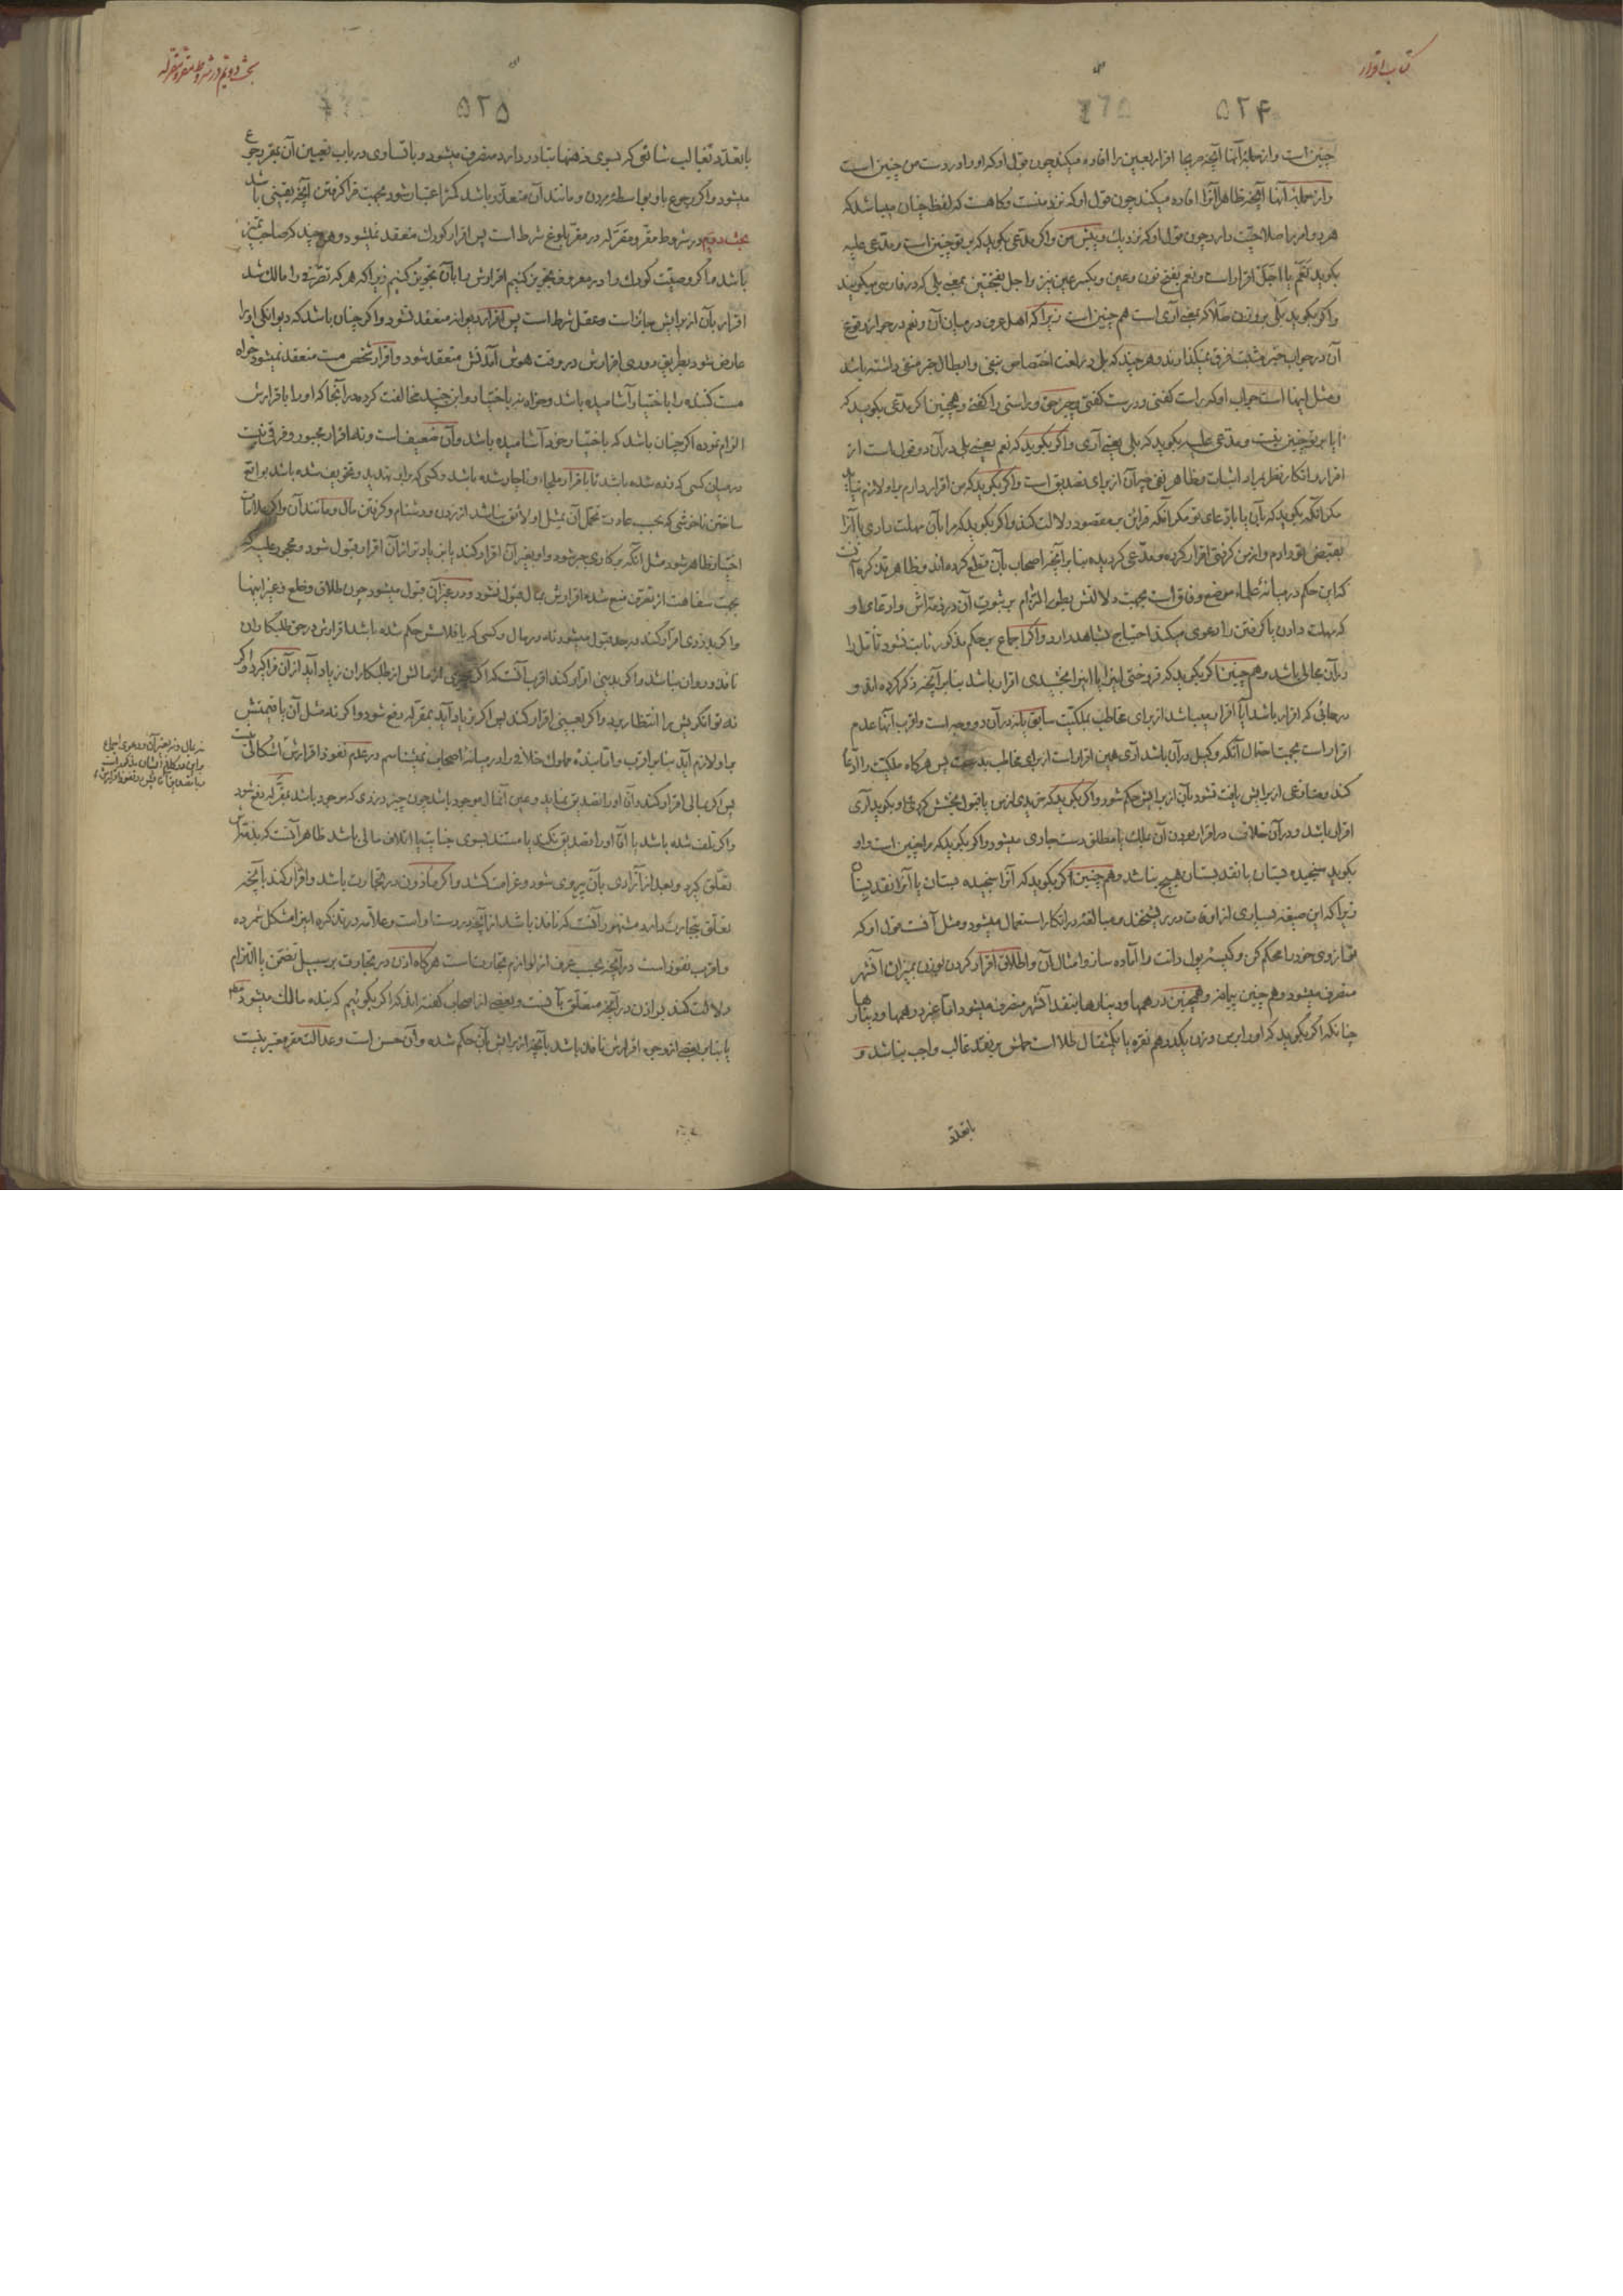 کتاب اقرار
۵۲۴
چنین است و از جمله آنها آنچه صریحا افاده میکند چون قول او که او را در دست من چنین است
و از جمله آنها آنچه ظاهرا آنرا افاده میکند چون قول او که نزد منست و گاهست که لفظ چنان میباشد که
هر دو امر را صلاحیت دارد چون قول او که نزدیک و پیش من و اگر مدعی بگوید که بر تو چنین است و مدعی علیه
بگوید نعم یا اجل اقرار است و نعم بفتح نون و عین و بکسر عین نیز و اجل بفتحتین بمعنی بلی که در فارسی میگویند
و اگر بگوید بلی بمعنی آری است هم چنین است زیرا که اهل عرف در میان آن و نعم در جواز وقوع
آن در جواب خبر مثبت فرق نمیگذارند و هر چند که بلی در لغت اختصاص بنفی و ابطال خبر منفی داشته باشد
و مثل اینها است جواب او که راست گفتی و درست گفتی و و راستی را گفتی و همچنین اگر مدعی بگوید که
آیا بر تو چنین نیست و مدعی علیه بگوید که بلی یعنی آری و اگر بگوید که نعم یعنی بلی در آن دو قول است از
اقرار و انکار نظر باراده اثبات و ظاهر نفی از برای تصدیق است و اگر بگوید که من اقرار دارم باو لازم نیاید
مگر آنکه بگوید که بآن یا بادعای تو مگر آنکه قرائن بمقصود دلالت کند و اگر بگوید که مرا بآن مهلت دادی یا آنرا
بقبض تو دادم و از من گرفتی اقرار کرده و مدعی گردیده بنا بر آنچه اصحاب بآن قطع کرده‌اند و ظاهر تذکره آنست
که این حکم در میانه علماء موضع وفاق است بجهت دلالتش بطور التزام بر ثبوت آن در ذمه‌اش و ادعای او
که مهلت دادن یا گرفتن را دعوی میکند احتیاج بشاهد دارد و اگر اجماع بر حکم مذکور ثابت نشود تأمل را
در آن مجالی باشد و هم چنین اگر بگوید که فروختی اینرا یا اینرا بخشیدی اقرار باشد بنا بر آنچه ذکر کرده اند و
در جائی که اقرار باشد آیا اقرار میباشد از برای مخاطب بملکیت سابق یا نه در آن دو وجه است و اقرب آنها عدم
اقرار است بجهت احتمال آنکه وکیل در آن باشد آری همین اقرار است از برای مخاطب پس هرگاه ملکیت را ادعا
کند و منازعی از برایش یافت نشود بآن از برایش حکم شود و اگر بگوید که خریدی از من یا قبول بخشش کردی و او بگوید آری
اقرار باشد و در آن خلاف در اقرار بودن آن بملک یا مطلق دست جاری میشود و اگر بگوید که مرا چنین است و او
بگوید سنجیده بستان یا نقد بستان هیچ نباشد و هم چنین اگر بگوید که آنرا سنجیده بستان یا آنرا نقد بستان
زیرا که این صیغه بسیاری از اوقات در ریشخند و مبالغه در انکار استعمال میشود و مثل آنست قول او که
ترازوی خود را محکم کن و کیسه پول دانت را آماده ساز و امثال آن و اطلاق اقرار کردن بوزن بمیزان اشهر
منصرف میشود و هم چنین پیمانه و همچنین درهمها و دینارها بنقد اشهر منصرف میشود اما درهمها و دینارها
چنانکه اگر بگوید که او را بر من وزن یکدرهم نقره یا یکمثقال طلا است حملش بر نقد غالب واجب نباشد و
با تعدد
بحث دویم در شروط مقر و مقر له
۵۲۵
با تعدد بغالب شائعی که بسوی ذهنها تبادر دارد منصرف میشود و با تساوی در باب تعیین آن بمقر رجوع
میشود و اگر رجوع باو بواسطه مردن و مانند آن متعذر باشد کمتر اعتبار شود بجهت فرا گرفتن آنچه یقینی باشد
بحث دویم در شروط مقر و مقر له در مقر بلوغ شرط است پس اقرار کودک منعقد نمیشود و هر چند که صاحب تمیز
باشد و اگر وصیت کودک را در معروف تجویز کنیم اقرارش را بآن تجویز کنیم زیرا که هر که تصرفی را مالک شد
اقرار بآن از برایش جائز است و عقل شرط است پس اقرار دیوانه منعقد نشود و اگر چنان باشد که دیوانگی او را
عارض شود بطریق دوری اقرارش در وقت هوش آمدنش منعقد شود و اقرار شخص مست منعقد نمیشود خواه
مست کننده را باختیار آشامیده باشد و خواه نه باختیار و ابن جنید مخالفت کرده در آنجا که او را باقرارش
الزام نموده اگر چنان باشد که باختیار خود آشامیده باشد و آن ضعیف است و نه اقرار مجبور و فرقی نیست
در میان کسی که زده شده باشد تا باقرار ملجاء و ناچار شده باشد و کسی که براو تهدید و تخویف شده باشد بواقع
ساختن ناخوشی که بحسب عادت تحمل آن بمثل او لائق نباشد از زدن و دشنام و گرفتن مال و مانند آن و اگر علامات
اختیار ظاهر شود مثل آنکه بر کاری جبر شود و او بغیر آن اقرار کند یا بزیاده‌تر از آن اقرار قبول شود و محجور علیه که
بجهت سفاهت از تصرف منع شده اقرارش بمال قبول نشود و در غیر آن قبول میشود چون طلاق و خلع و غیر اینها
و اگر بدزدی اقرار کند در حد قبول میشود نه در مال و کسی که بافلاسش حکم شده باشد اقرارش در حق طلبکاران
نافذ و روان نباشد و اگر بدینی اقرار کند اقرب آنست که اگر چیزی از مالش از طلبکاران زیاد آید از آن فرا گیرد و اگر
نه توانگریش را انتظار برد و اگر بعینی اقرار کند پس اگر زیاد آید بمقر له دفع شود و اگر نه مثل آن یا قیمتش
براو لازم آید بنا بر اقرب و اما بنده مملوک خلافی را در میانه اصحاب نمیشناسم در عدم نفوذ اقرارش اشکالی نیست
پس اگر بمالی اقرار کند و آقا او را تصدیق نماید و عین آنمال موجود باشد چون چیز دزدی که موجود باشد بمقر له دفع شود
و اگر تلف شده باشد یا آقا او را تصدیق نکند یا مستند بسوی جنایت یا اتلاف مالی باشد ظاهر آنست که بذمه‌اش
تعلق گیرد و بعد از آزادی بآن پیروی شود و غرامت کشد و اگر مأذون در تجارت باشد و اقرار کند بآنچه
تعلق بتجارت دارد مشهور آنست که نافذ باشد از آنچه در دست او است و علامه در تذکره اینرا مشکل شمرده
و اقرب نفوذ است در آنچه بحسب عرف از لوازم تجارت است هرگاه اذن در تجارت بر سبیل تضمن یا التزام
دلالت کند بر اذن در آنچه متعلق بآنست و بعضی از اصحاب گفته اند که اگر بگوئیم که بنده مالک میشود مطلقا
یا بنا بر بعضی از وجوه اقرارش نافذ باشد بآنچه از برایش بآن حکم شده و آن حسن است و عدالت مقر معتبر نیست